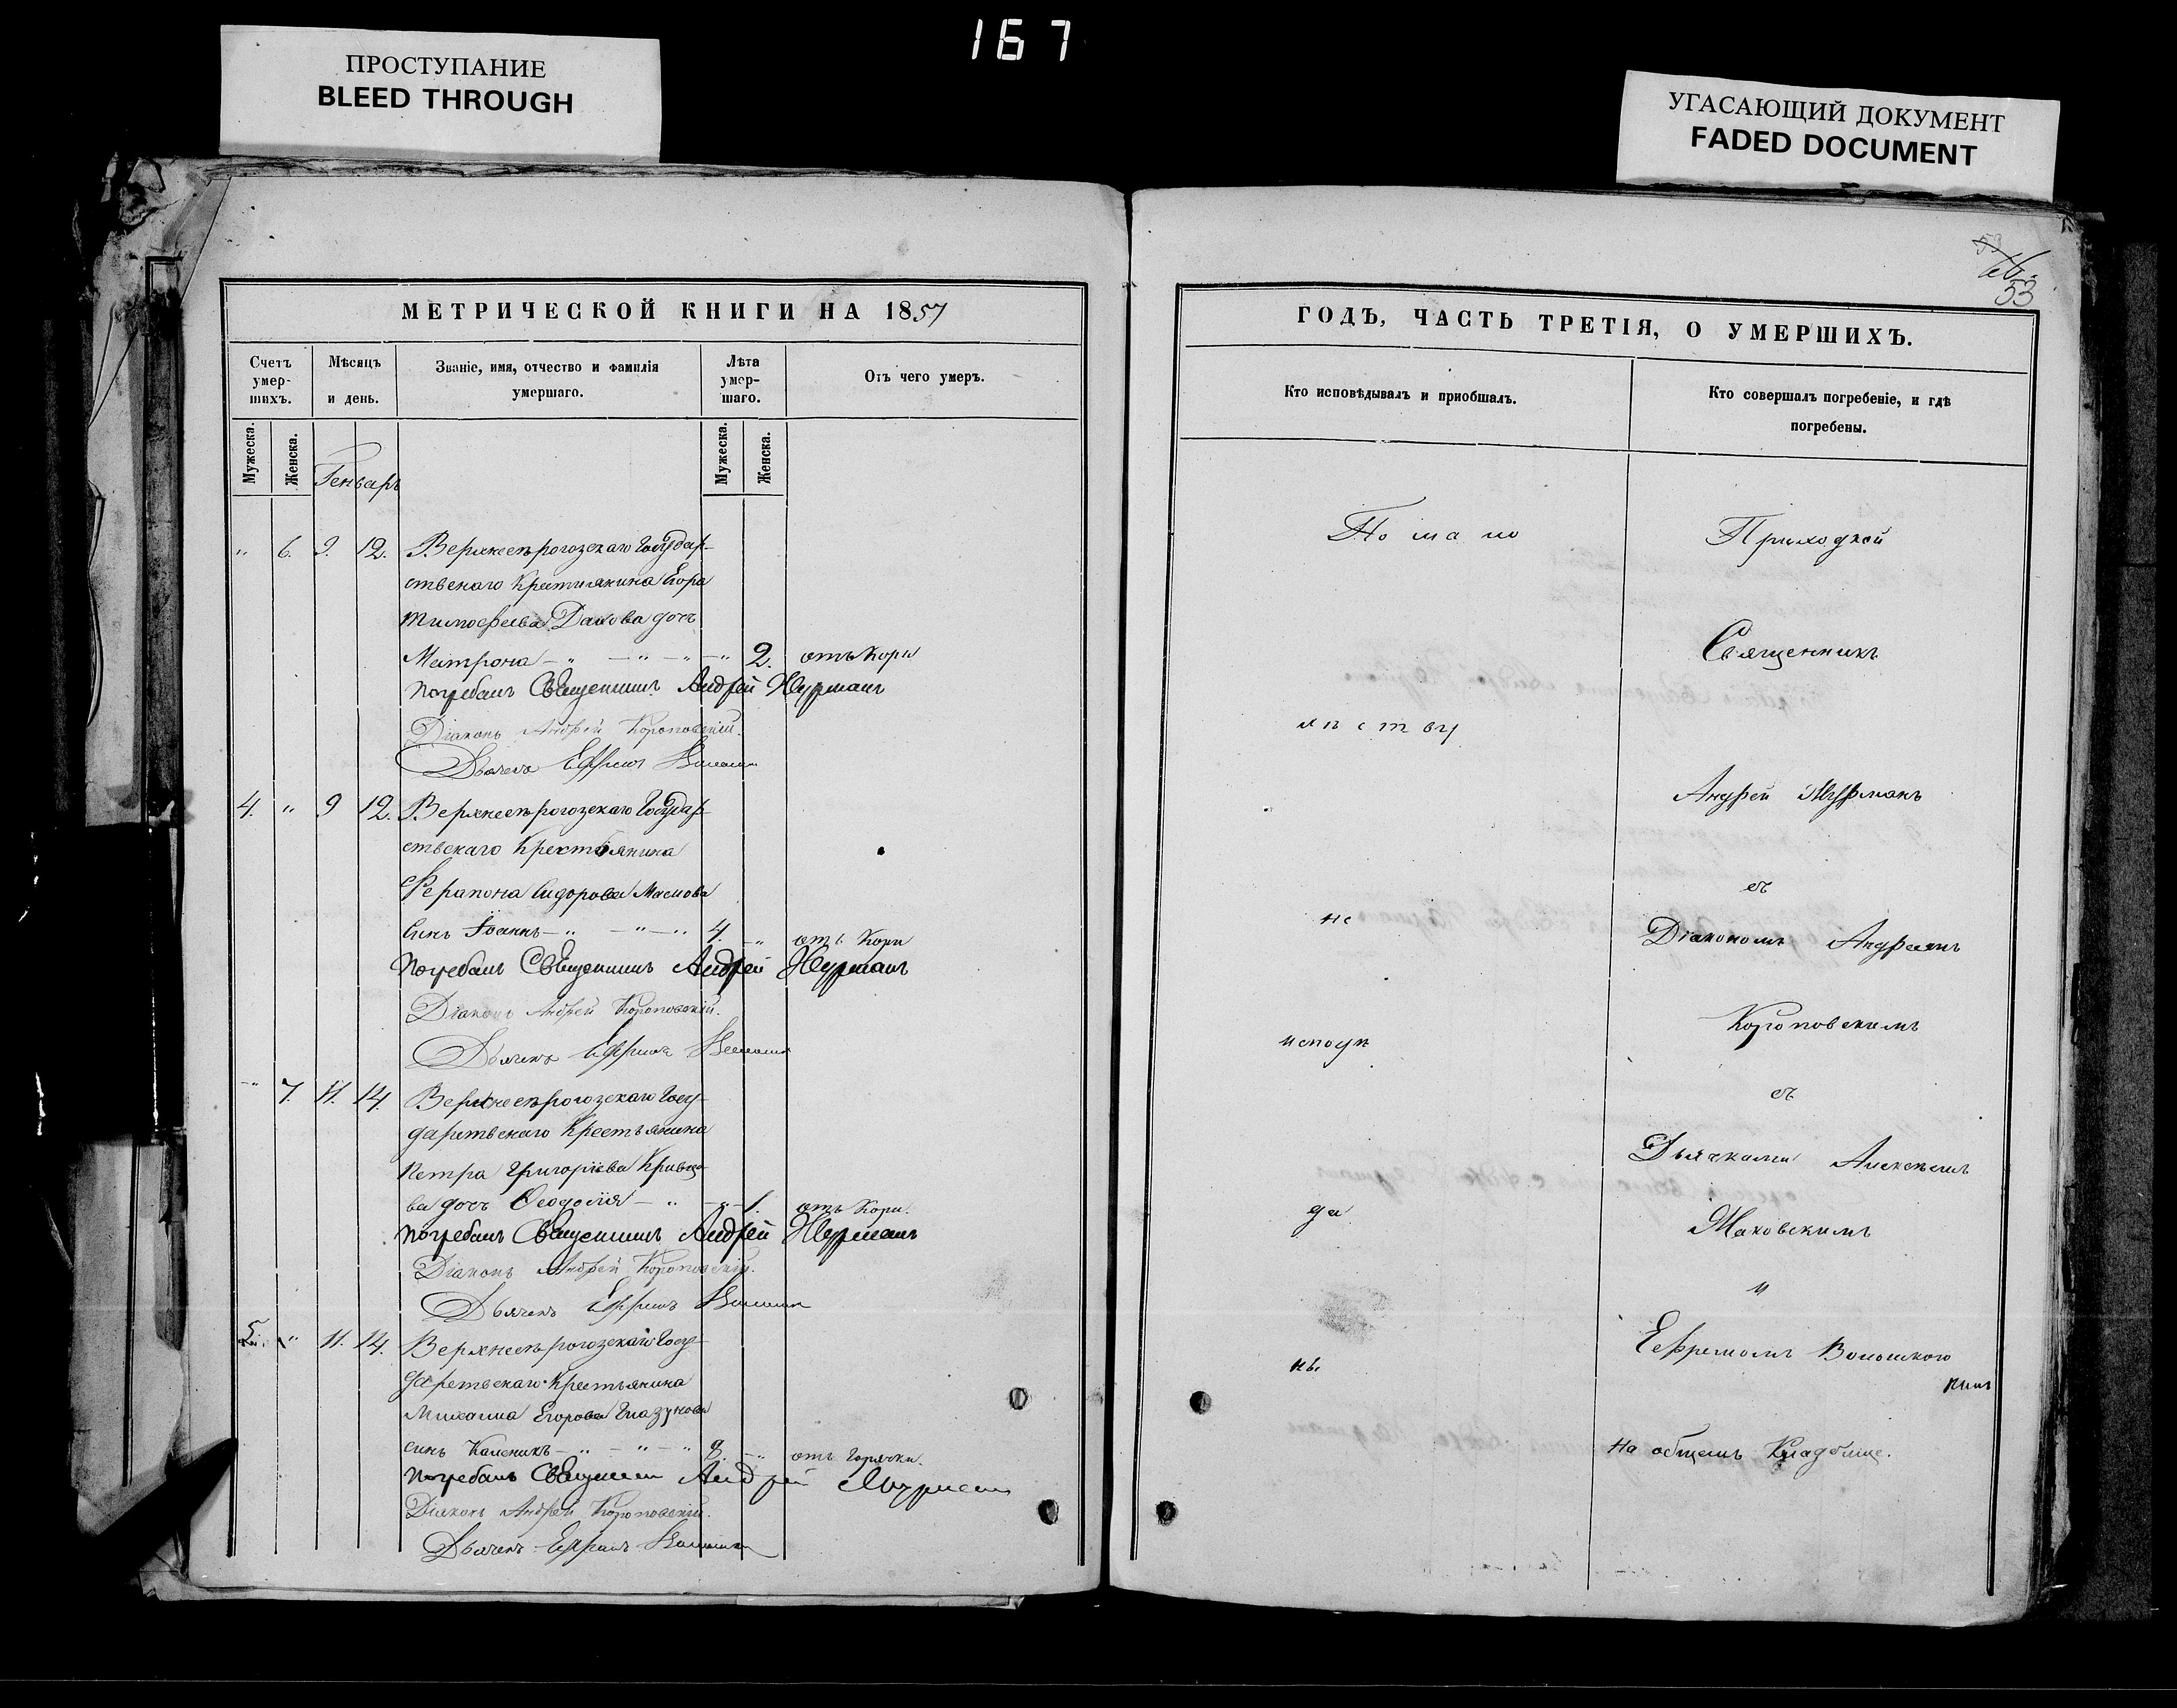 167
ПРОСТУПАНИЕ
BLEED THROUGH
УГАСАЮЩИЙ ДОКУМЕНТ
FADED DOCUMENT
53
МЕТРИЧЕСКОЙ КНИГИ НА 1857
Счетъ умер-шихъ.
Мѣсяцъ и день.
Званіе, имя, отчество и фамилія умершаго.
Лѣта умер-шаго.
Отъ чего умеръ.
Мужеска.
Женска.
Генварь
Мужеска.
Женска.
" 6. 9. 12. Верхнесѣрогозскаго Государ-
ственаго Крестиянина Егора
Тимофеева дочь
Матрона — " — " — " — " 2. отъ Кори
Погребалъ Священникъ Андрей Мурманъ
Діаконъ Андрей Короповскій.
Дьячекъ Ефремъ
4. " 9 12. Верхнесѣрогозскаго Государ-
ствскаго Крестьянина
Ферапона Сидорова Маслова
Синъ Іоаннъ — " — " — " 4. " отъ Кори
Погребалъ Священникъ Андрей Мурманъ
Діаконъ Андрей Короповскій.
Дьячекъ Ефремъ
" 7. 11. 14. Верхнесѣрогозскаго Госу-
дарственаго Крестьянина
Петра Григоріева
ва дочь Феодосія — " — " — 1. отъ Кори.
Погребалъ Священникъ Андрей Мурманъ
Діаконъ Андрей Короповскій.
Дьячекъ Ефремъ
5. " 11. 14. Верхнесѣрогозскаго Госу-
дарствскаго Крестьянина
Михаила Егорова Глазунова
синъ Каленикъ — " — " — " 8. " отъ Горячки.
Погребалъ Священникъ Андрей Мурманъ
Діаконъ Андрей Короповскій.
Дьячекъ Ефремъ
ГОДЪ, ЧАСТЬ ТРЕТІЯ, О УМЕРШИХЪ.
Кто исповѣдывалъ и приобшалъ.
Кто совершалъ погребеніе, и гдѣ
погребены.
По мало
лѣтству
не
исповѣ
да
ны
Приходкой
Священникъ
Андрей Мурманъ
съ
Діакономъ Андреемъ
Короповскимъ
съ
Дьячками Алексѣемъ
Маковскимъ
и
Ефремомъ
На общемъ Кладбище.